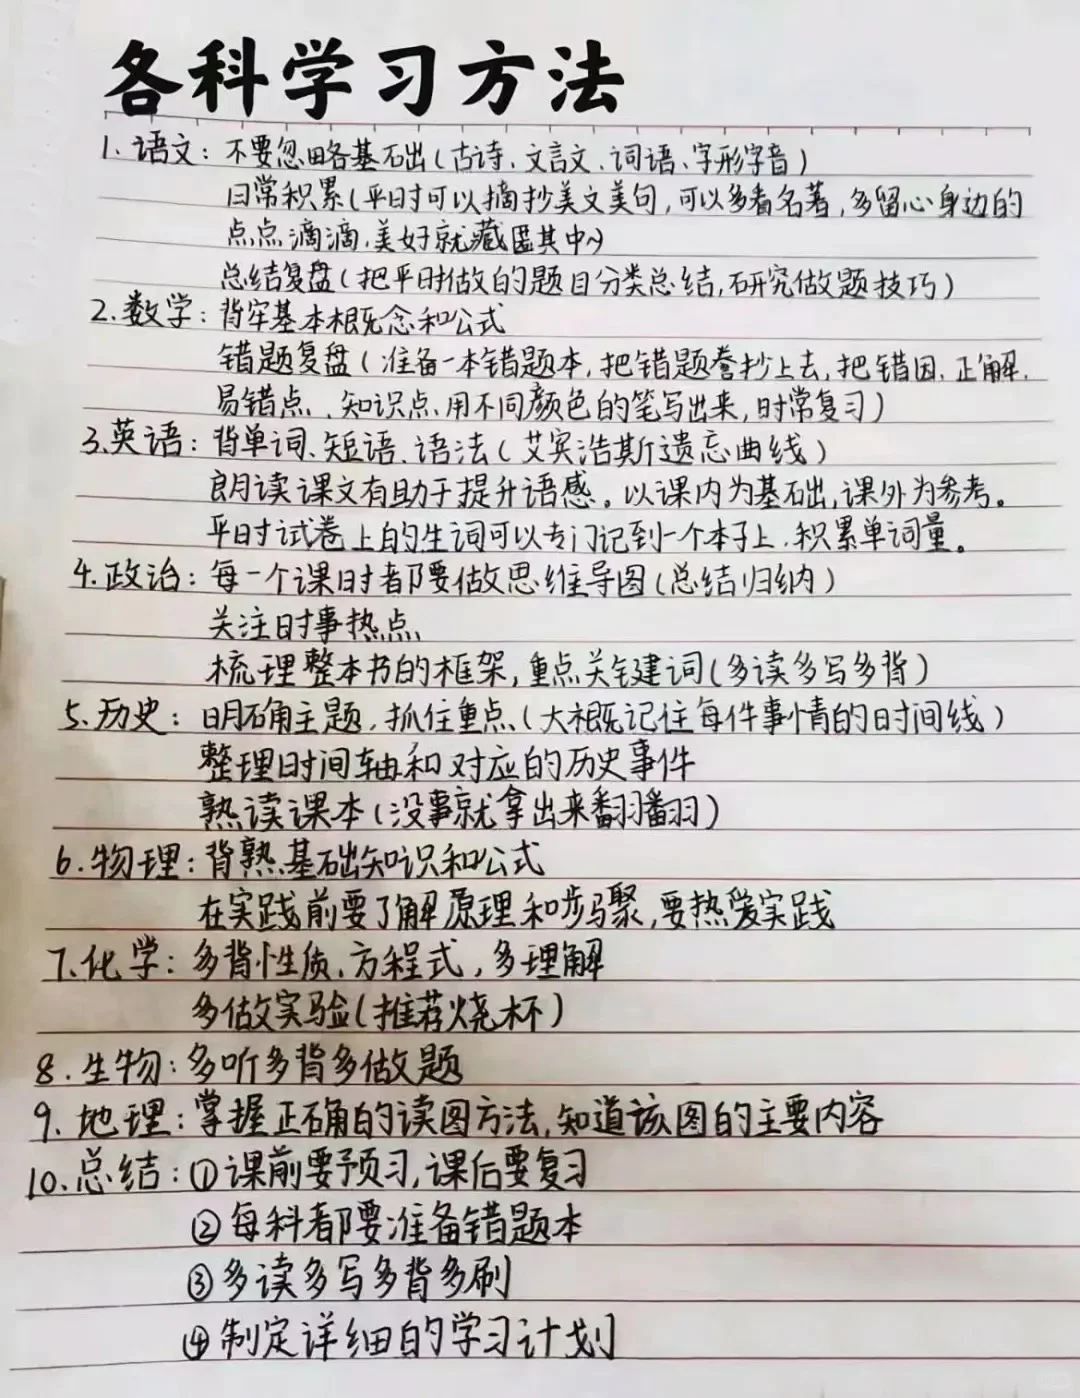 各科学习方法
1. 语文：不要忽略基础（古诗、文言文、词语、字形字音）
日常积累（平时可以摘抄美文美句，可以多看名著，多留心身边的
点点滴滴，美好就藏匿其中~）
总结复盘（把平时做的题目分类总结，研究做题技巧）
2. 数学：背牢基本概念和公式
错题复盘（准备一本错题本，把错题誊抄上去，把错因、正解、
易错点、知识点用不同颜色的笔写出来，时常复习）
3. 英语：背单词、短语、语法（艾宾浩斯遗忘曲线）
朗读课文有助于提升语感。以课内为基础，课外为参考。
平时试卷上的生词可以专门记到一个本子上，积累单词量。
4. 政治：每一个课时都要做思维导图（总结归纳）
关注时事热点
梳理整本书的框架，重点关键词（多读多写多背）
5. 历史：明确主题，抓住重点（大概记住每件事情的时间线）
整理时间轴和对应的历史事件
熟读课本（没事就拿出来翻翻）
6. 物理：背熟基础知识和公式
在实践前要了解原理和步骤，要热爱实践
7. 化学：多背性质、方程式，多理解
多做实验（推荐烧杯）
8. 生物：多听多背多做题
9. 地理：掌握正确的读图方法，知道该图的主要内容
10. 总结：①课前要预习，课后要复习
②每科都要准备错题本
③多读多写多背多刷
④制定详细的学习计划